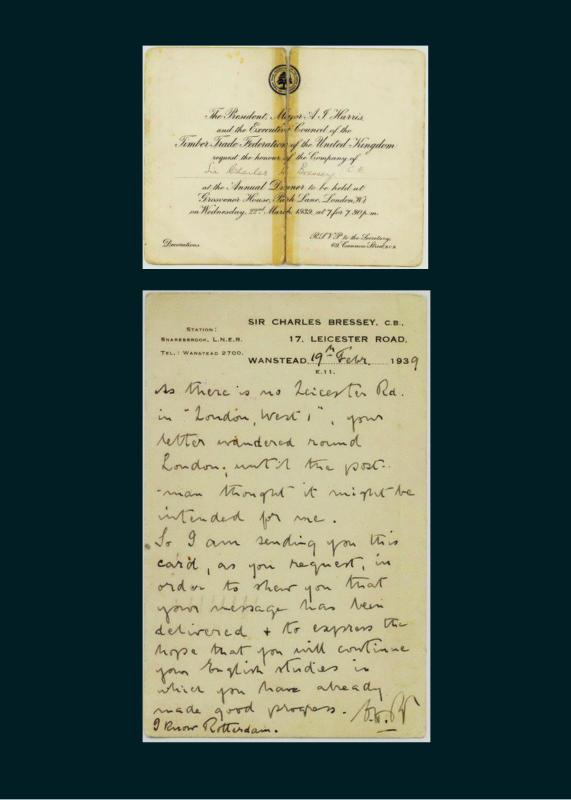 The President, Major A J Harris,
and the Executive Council of the
Timber Trade Federation of the United Kingdom
request the honour of the Company of
Sir Charles H. Bressey C.B.
at the Annual Dinner to be held at
Grosvenor House, Park Lane, London, W.1
on Wednesday, 22nd March, 1939, at 7 for 7.30 p.m.
Decorations
R.S.V.P. to the Secretary,
69, Cannon Street, E.C.4.
STATION:
SNARESBROOK, L.N.E.R.
TEL.: WANSTEAD 2700.
SIR CHARLES BRESSEY, C.B.,
17, LEICESTER ROAD,
WANSTEAD, 19th Febr. 1939
E.11.
As there is no Leicester Rd.
in "London, West 1", your
letter wandered round
London, until the post-
-man thought it might be
intended for me.
So I am sending you this
card, as you request, in
order to shew you that
your message has been
delivered & to express the
hope that you will continue
your English studies in
which you have already
made good progress.
I know Rotterdam.